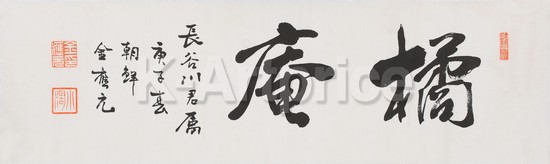 橘庵
長谷川君屬
庚子春
朝鮮
金應元
K-Artprice